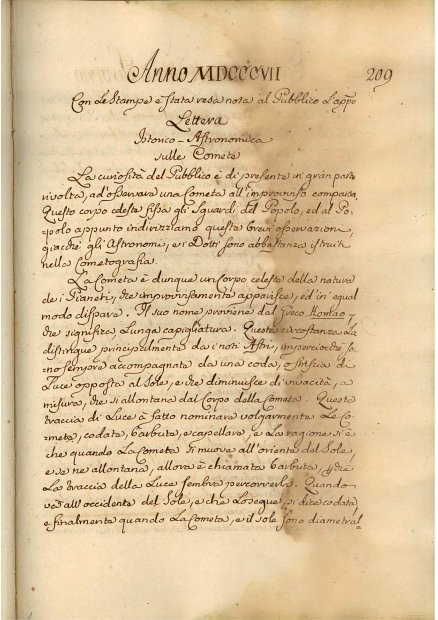 Anno MDCCCVII 209
Con le Stampe è stata resa nota al Pubblico l'app.
Lettera
Istorico-Astronomica
sulle Comete
La curiosità del Pubblico è di presente in gran parte
rivolta, ad osservare una Cometa all'improvviso comparsa.
Questo corpo celeste fissa gli Sguardi del Popolo, ed al Po-
polo appunto indirizziamo queste brevi osservazioni,
giacchè gli Astronomi, e i Dotti sono abbastanza istruiti
nella Cometografia.
La Cometa è dunque un Corpo celeste della natura
de i Pianeti, che improvvisamente apparisce, ed in egual
modo dispare. Il suo nome proviene dal Greco
che significa Lunga capigliatura. Questa circostanza La
distingue principalmente da i noti Astri, imperciochè so-
no sempre accompagnate da una coda, o striscia di
Luce opposta al Sole, e che diminuisce di vivacità, a
misura, che si allontana dal Corpo della Cometa. Questa
traccia di Luce à fatto nominare volgarmente Le Co-
meta, codata, barbuta, e capellata, e La ragione si è
che quando La Cometa si muove all'oriente del Sole,
e se ne allontana, allora è chiamata barbuta,
La traccia della Luce sembra percorrerla. Quando
ved all'occidente del Sole, e che Lo segue, si dice codata,
e finalmente quando La Cometa, e il Sole sono diametral-